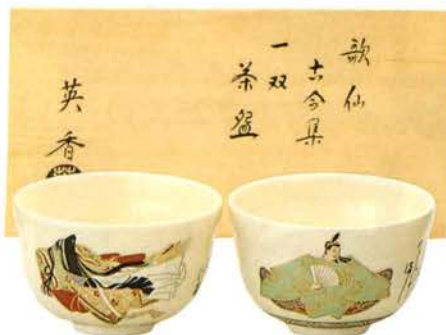 歌仙
古今集
一双
茶盌
英香